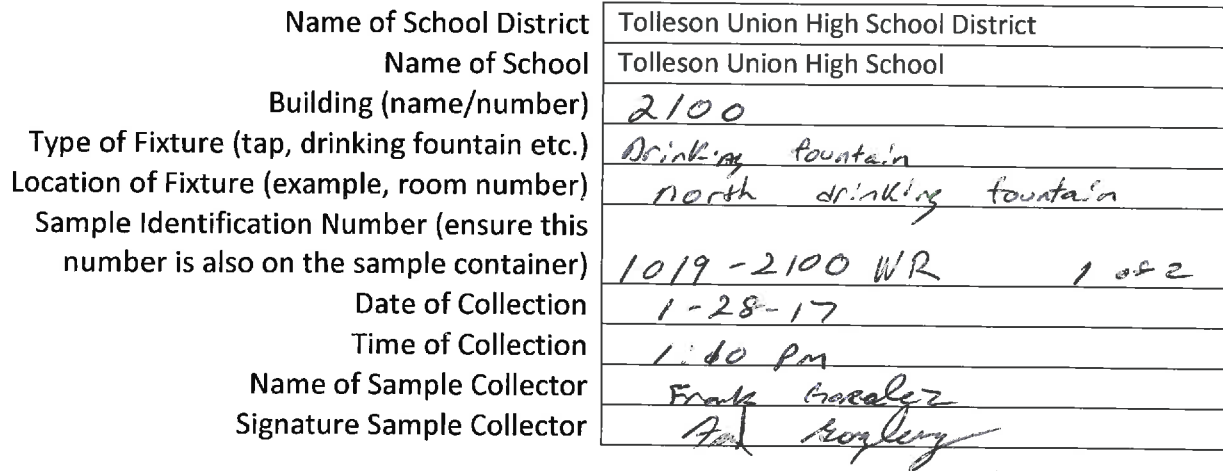 Name of School District Tolleson Union High School District
Name of School Tolleson Union High School
Building (name/number) 2100
Type of Fixture (tap, drinking fountain etc.) Drinking fountain
Location of Fixture (example, room number) north drinking fountain
Sample Identification Number (ensure this
number is also on the sample container) 1019-2100 WR 1 of 2
Date of Collection 1-28-17
Time of Collection PM
Name of Sample Collector Frank Gonzalez
Signature Sample Collector